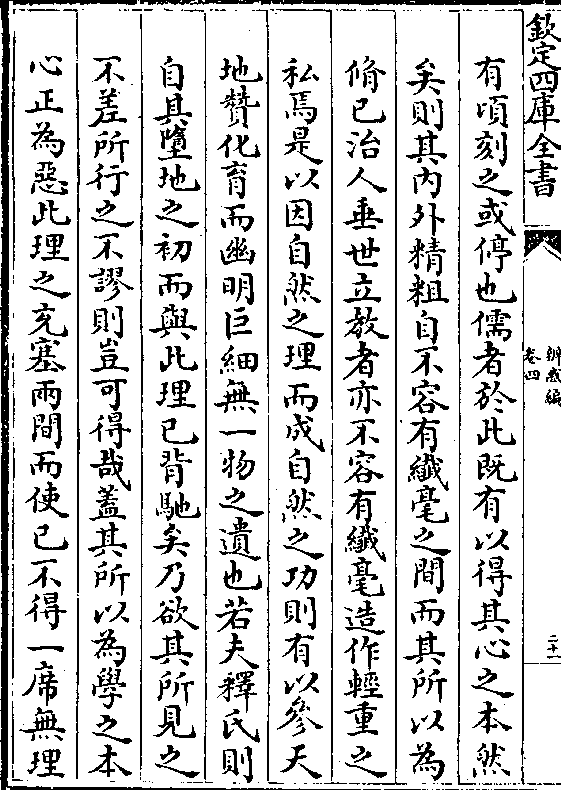 欽定四庫全書
辨惑編
卷四
二十一
有頃刻之或停也儒者於此既有以得其心之本然
矣則其内外精粗自不容有纖毫之間而其所以為
脩已治人垂世立教者亦不容有纖毫造作輕重之
私焉是以因自然之理而成自然之功則有以參天
地贊化育而幽明巨細無一物之遺也若夫釋氏則
自其墮地之初而與此理已背馳矣乃欲其所見之
不差所行之不謬則豈可得哉蓋其所以為學之本
心正為惡此理之充塞兩間而使已不得一席無理